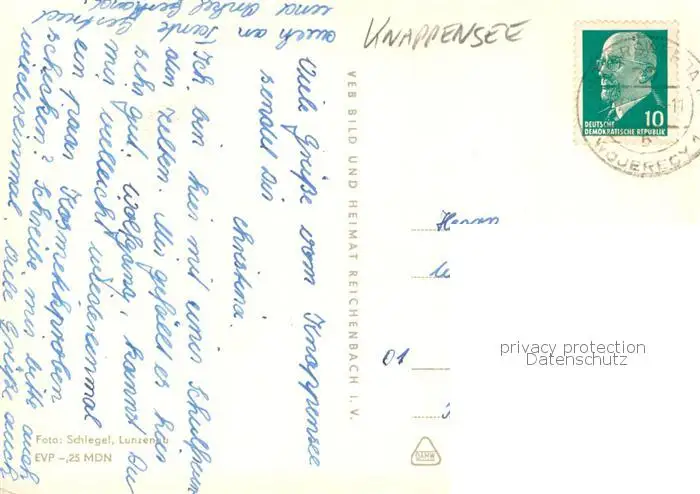 KNAPPENSEE
Viele Grüße vom Knappensee
sendet dir
Christina.
Ich bin hier mit einer Schulfreun
din zelten. Mir gefällt es hier
sehr gut. Wolfgang, kannst Du
mir vielleicht wiedereinmal
ein paar Kosmetikproben
schicken? Schreibe mir bitte auch
wiedereinmal. Viele Grüße auch
auch an Tante Gertrud
und Onkel Gerhard.
VEB BILD UND HEIMAT REICHENBACH I. V.
DEUTSCHE
DEMOKRATISCHE REPUBLIK
10
b
WOJERECY
Herrn
01
privacy protection
Datenschutz
Foto: Schlegel, Lunzenau
EVP –,25 MDN
DAHW